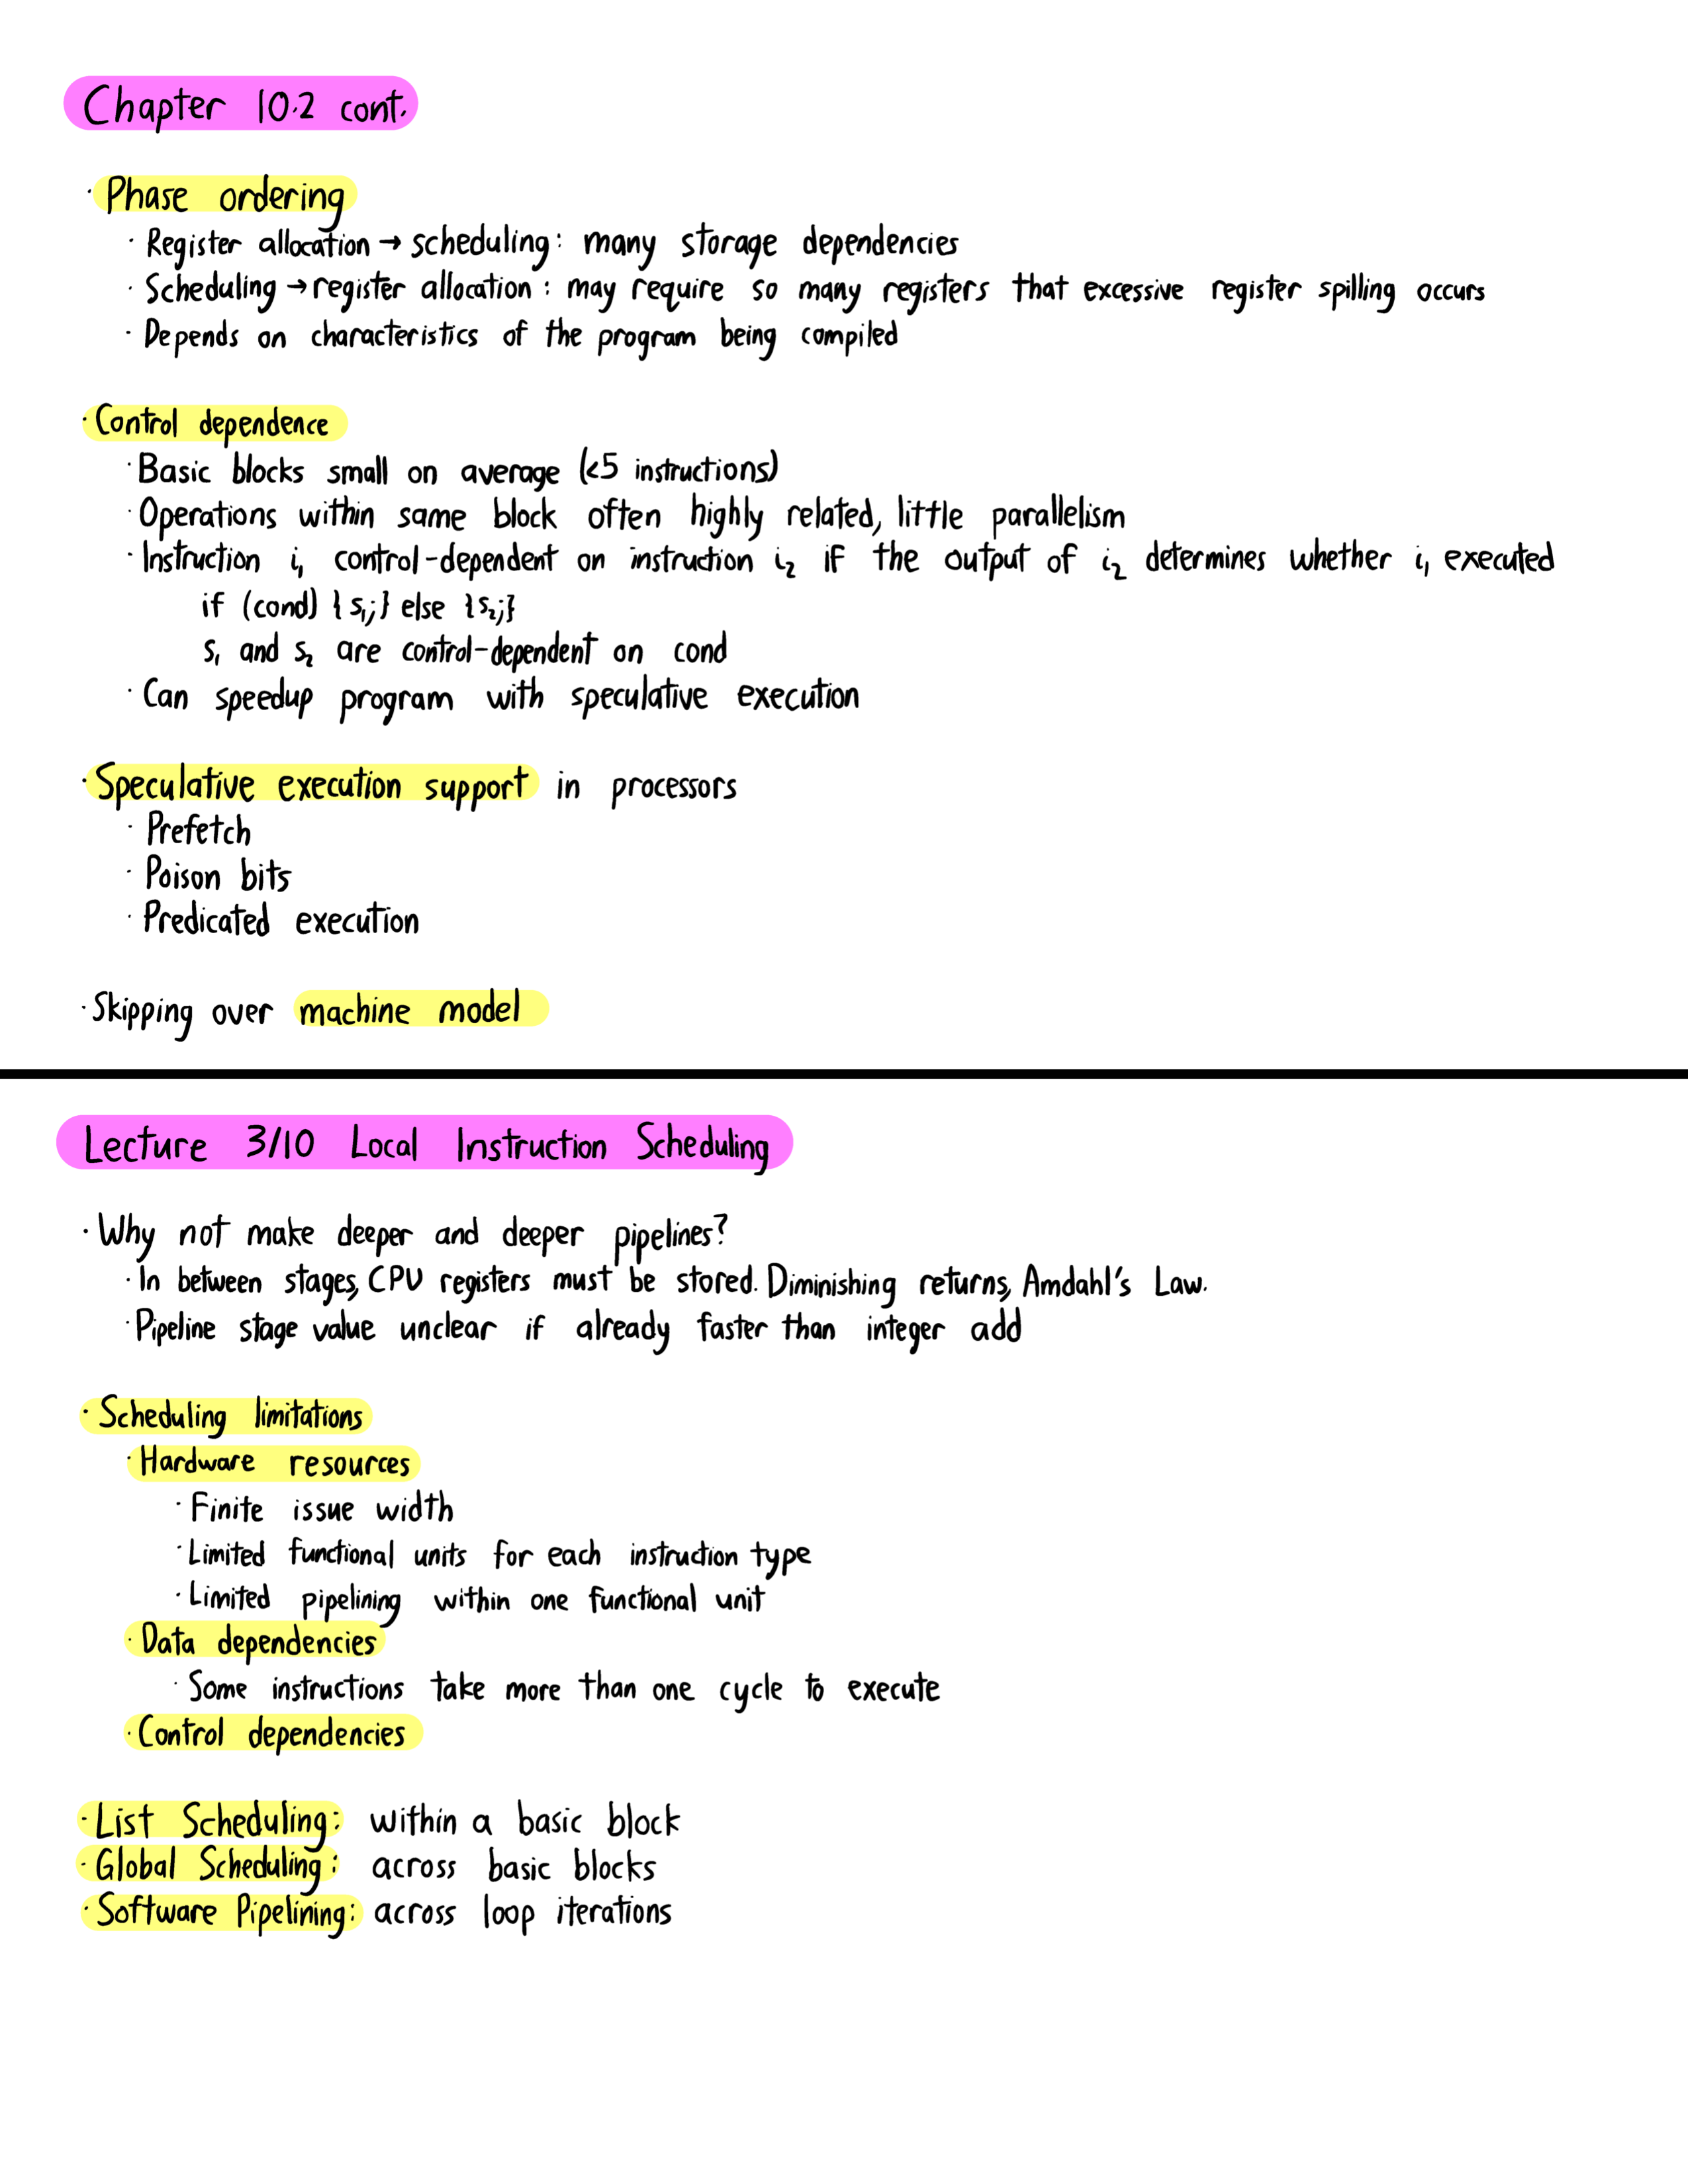 Chapter 10.2 cont.
· Phase ordering
· Register allocation → scheduling: many storage dependencies
· Scheduling → register allocation: may require so many registers that excessive register spilling occurs
· Depends on characteristics of the program being compiled
· Control dependence
· Basic blocks small on average (<5 instructions)
· Operations within same block often highly related, little parallelism
· Instruction i₁ control-dependent on instruction i₂ if the output of i₂ determines whether i₁ executed
if (cond) {s₁;} else {s₂;}
s₁ and s₂ are control-dependent on cond
· Can speedup program with speculative execution
· Speculative execution support in processors
· Prefetch
· Poison bits
· Predicated execution
· Skipping over machine model
Lecture 3/10 Local Instruction Scheduling
· Why not make deeper and deeper pipelines?
· In between stages, CPU registers must be stored. Diminishing returns, Amdahl's Law.
· Pipeline stage value unclear if already faster than integer add
· Scheduling limitations
· Hardware resources
· Finite issue width
· Limited functional units for each instruction type
· Limited pipelining within one functional unit
· Data dependencies
· Some instructions take more than one cycle to execute
· Control dependencies
· List Scheduling: within a basic block
· Global Scheduling: across basic blocks
· Software Pipelining: across loop iterations